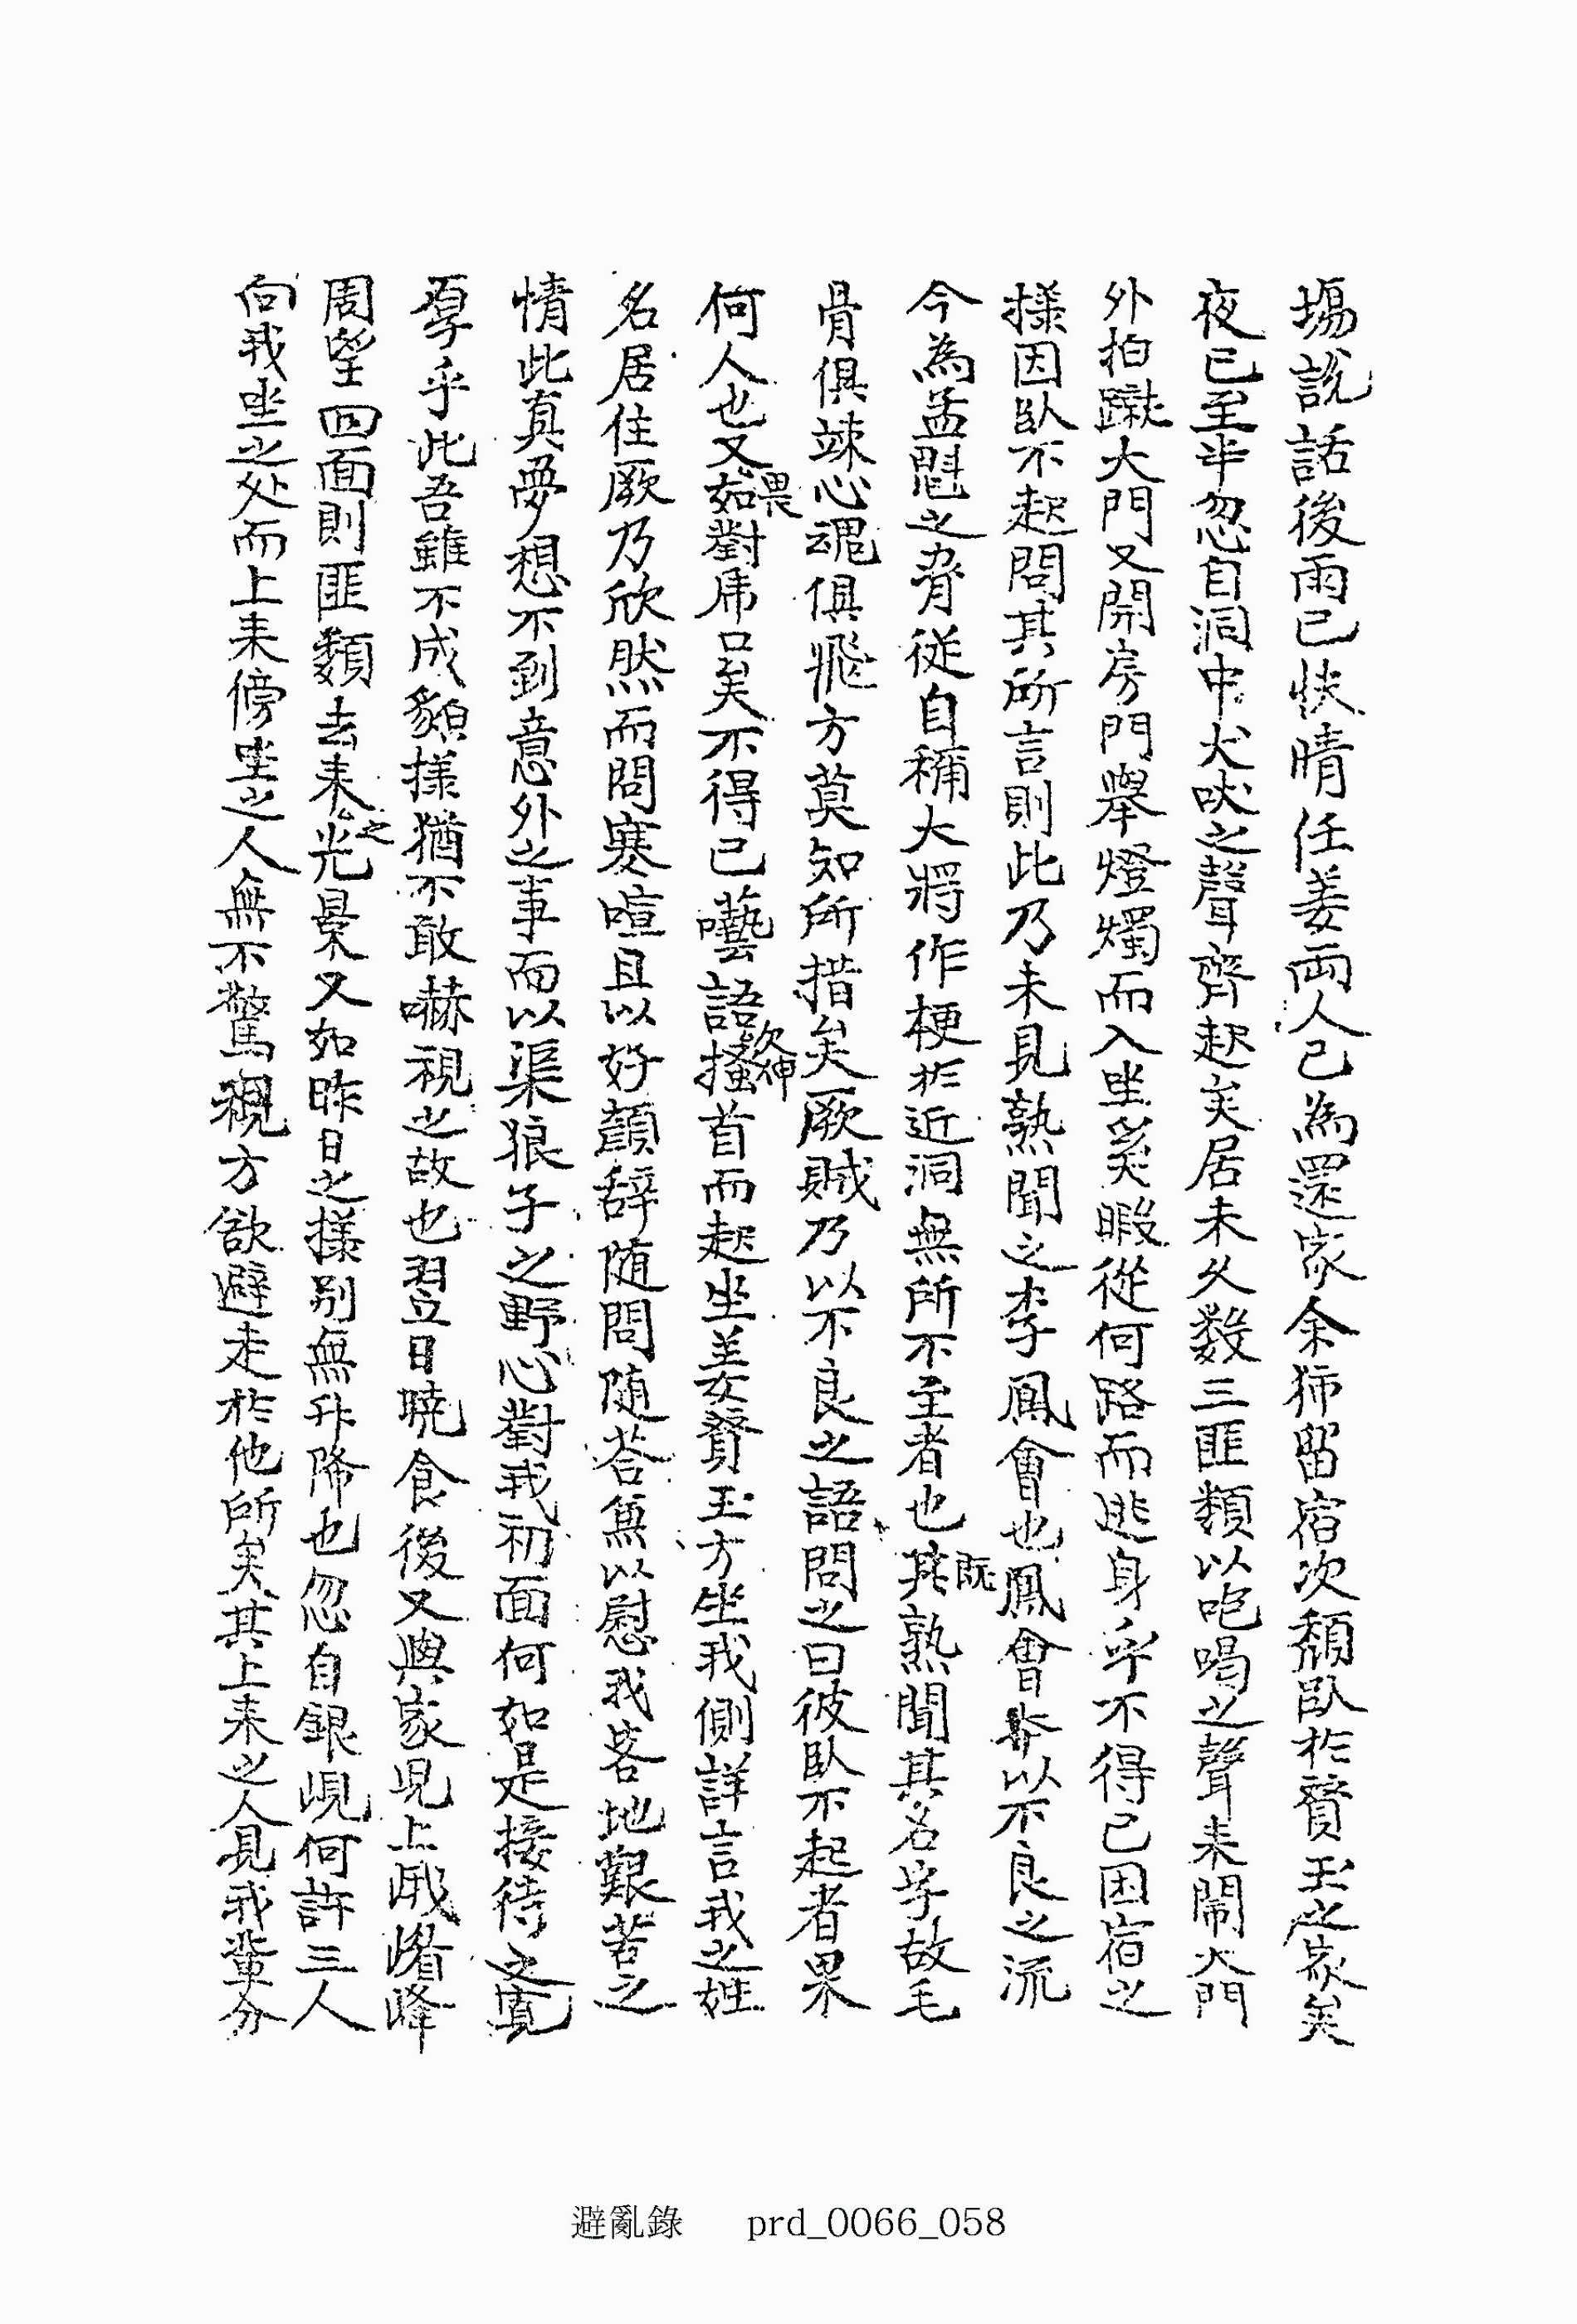 場說話後雨已快晴任姜兩人已為還家余獨留宿次頹臥於贇玉之家矣
夜已至半忽自洞中犬吠之聲齊起矣居未久數三匪類以咆喝之聲来鬧大門
外拍蹴大門又開房門擧燈燭而入坐矣暇從何路而逃身乎不得已困宿之
樣因臥不起問其所言則此乃未見熟聞之李鳳會也鳳會本以不良之流
今為孟魁之脅從自稱大將作梗於近洞無所不至者也其既熟聞其名字故毛
骨俱竦心魂俱飛方莫知所措矣厥賊乃以不良之語問之曰彼臥不起者果
何人也又如畏對虎口矣不得已囈語欠伸搔首而起坐姜贇玉方坐我側詳言我之姓
名居住厥乃欣然而問寒喧且以好顔辞随問随答無以慰我客地艱苦之
情此真夢想不到意外之事而以渠狼子之野心對我初面何如是接待之寬
厚乎此吾雖不成貌樣猶不敢嚇視之故也翌日曉食後又與家兄上戚峰
周望四面則匪類去来之光景又如昨日之樣别無升降也忽自銀峴何許三人
向我坐之处而上来傍坐之人無不驚視方欲避走於他所矣其上来之人見我輩分